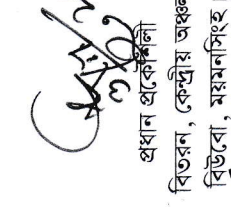 প্রধান প্রকৌশলী
বিতরন, কেন্দ্রীয় অঞ্চল
বিউবো, ময়মনসিংহ।